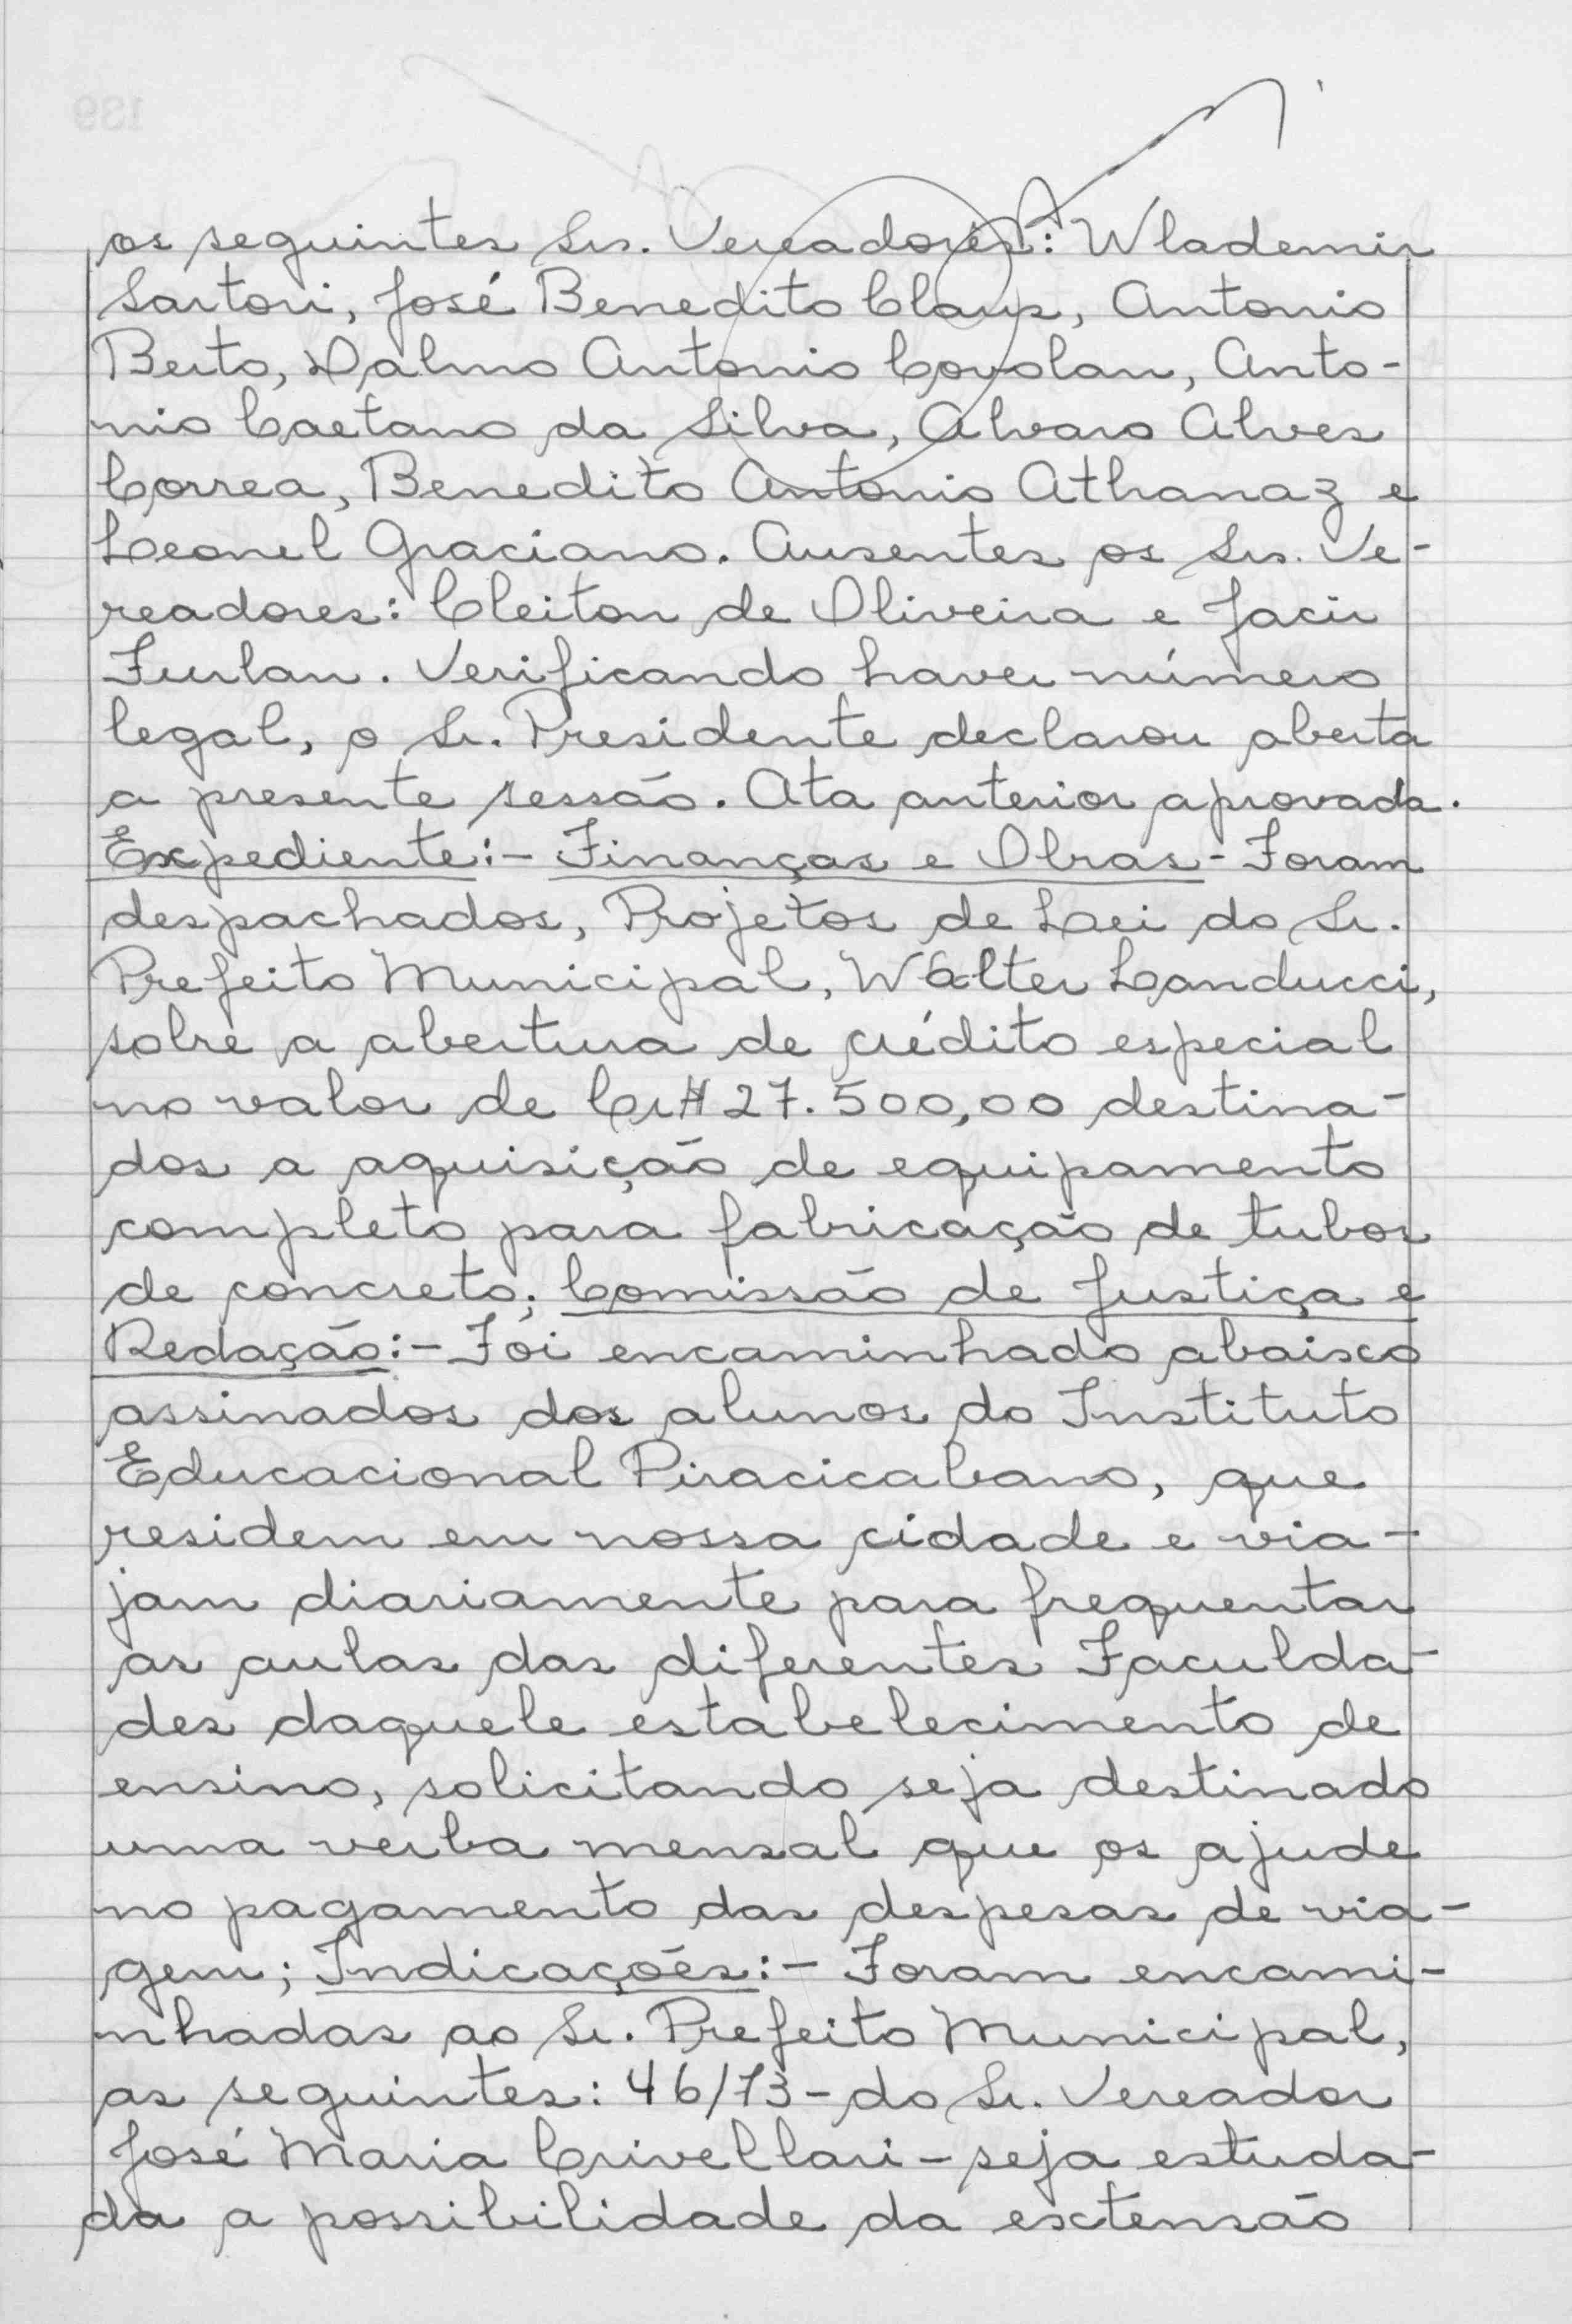 os seguintes Srs. Vereadores: Wlademir
Sartori, José Benedito Claus, Antonio
Berto, Dalmo Antonio Covolan, Anto-
nio Caetano da Silva, Alvaro Alves
Correa, Benedito Antonio Athanaz e
Leonel Graciano. Ausentes os Srs. Ve-
readores: Cleiton de Oliveira e Jacir
Furlan. Verificando haver número
legal, o Sr. Presidente declarou aberta
a presente sessão. Ata anterior aprovada.
Expediente:- Finanças e Obras - Foram
despachados, Projetos de Lei do Sr.
Prefeito Municipal, Walter Landucci,
sobre a abertura de crédito especial
no valor de Cr$ 27.500,00 destina-
dos a aquisição de equipamento
completo para fabricação de tubos
de concreto; Comissão de Justiça e
Redação:- Foi encaminhado abaixo
assinados dos alunos do Instituto
Educacional Piracicabano, que
residem em nossa cidade e via-
jam diariamente para frequentar
as aulas das diferentes Faculda-
des daquele estabelecimento de
ensino, solicitando seja destinado
uma verba mensal que os ajude
no pagamento das despesas de via-
gem; Indicações:- Foram encami-
nhadas ao Sr. Prefeito Municipal,
as seguintes: 46/73 - do Sr. Vereador
José Maria Crivellari - seja estuda-
da a possibilidade da extensão